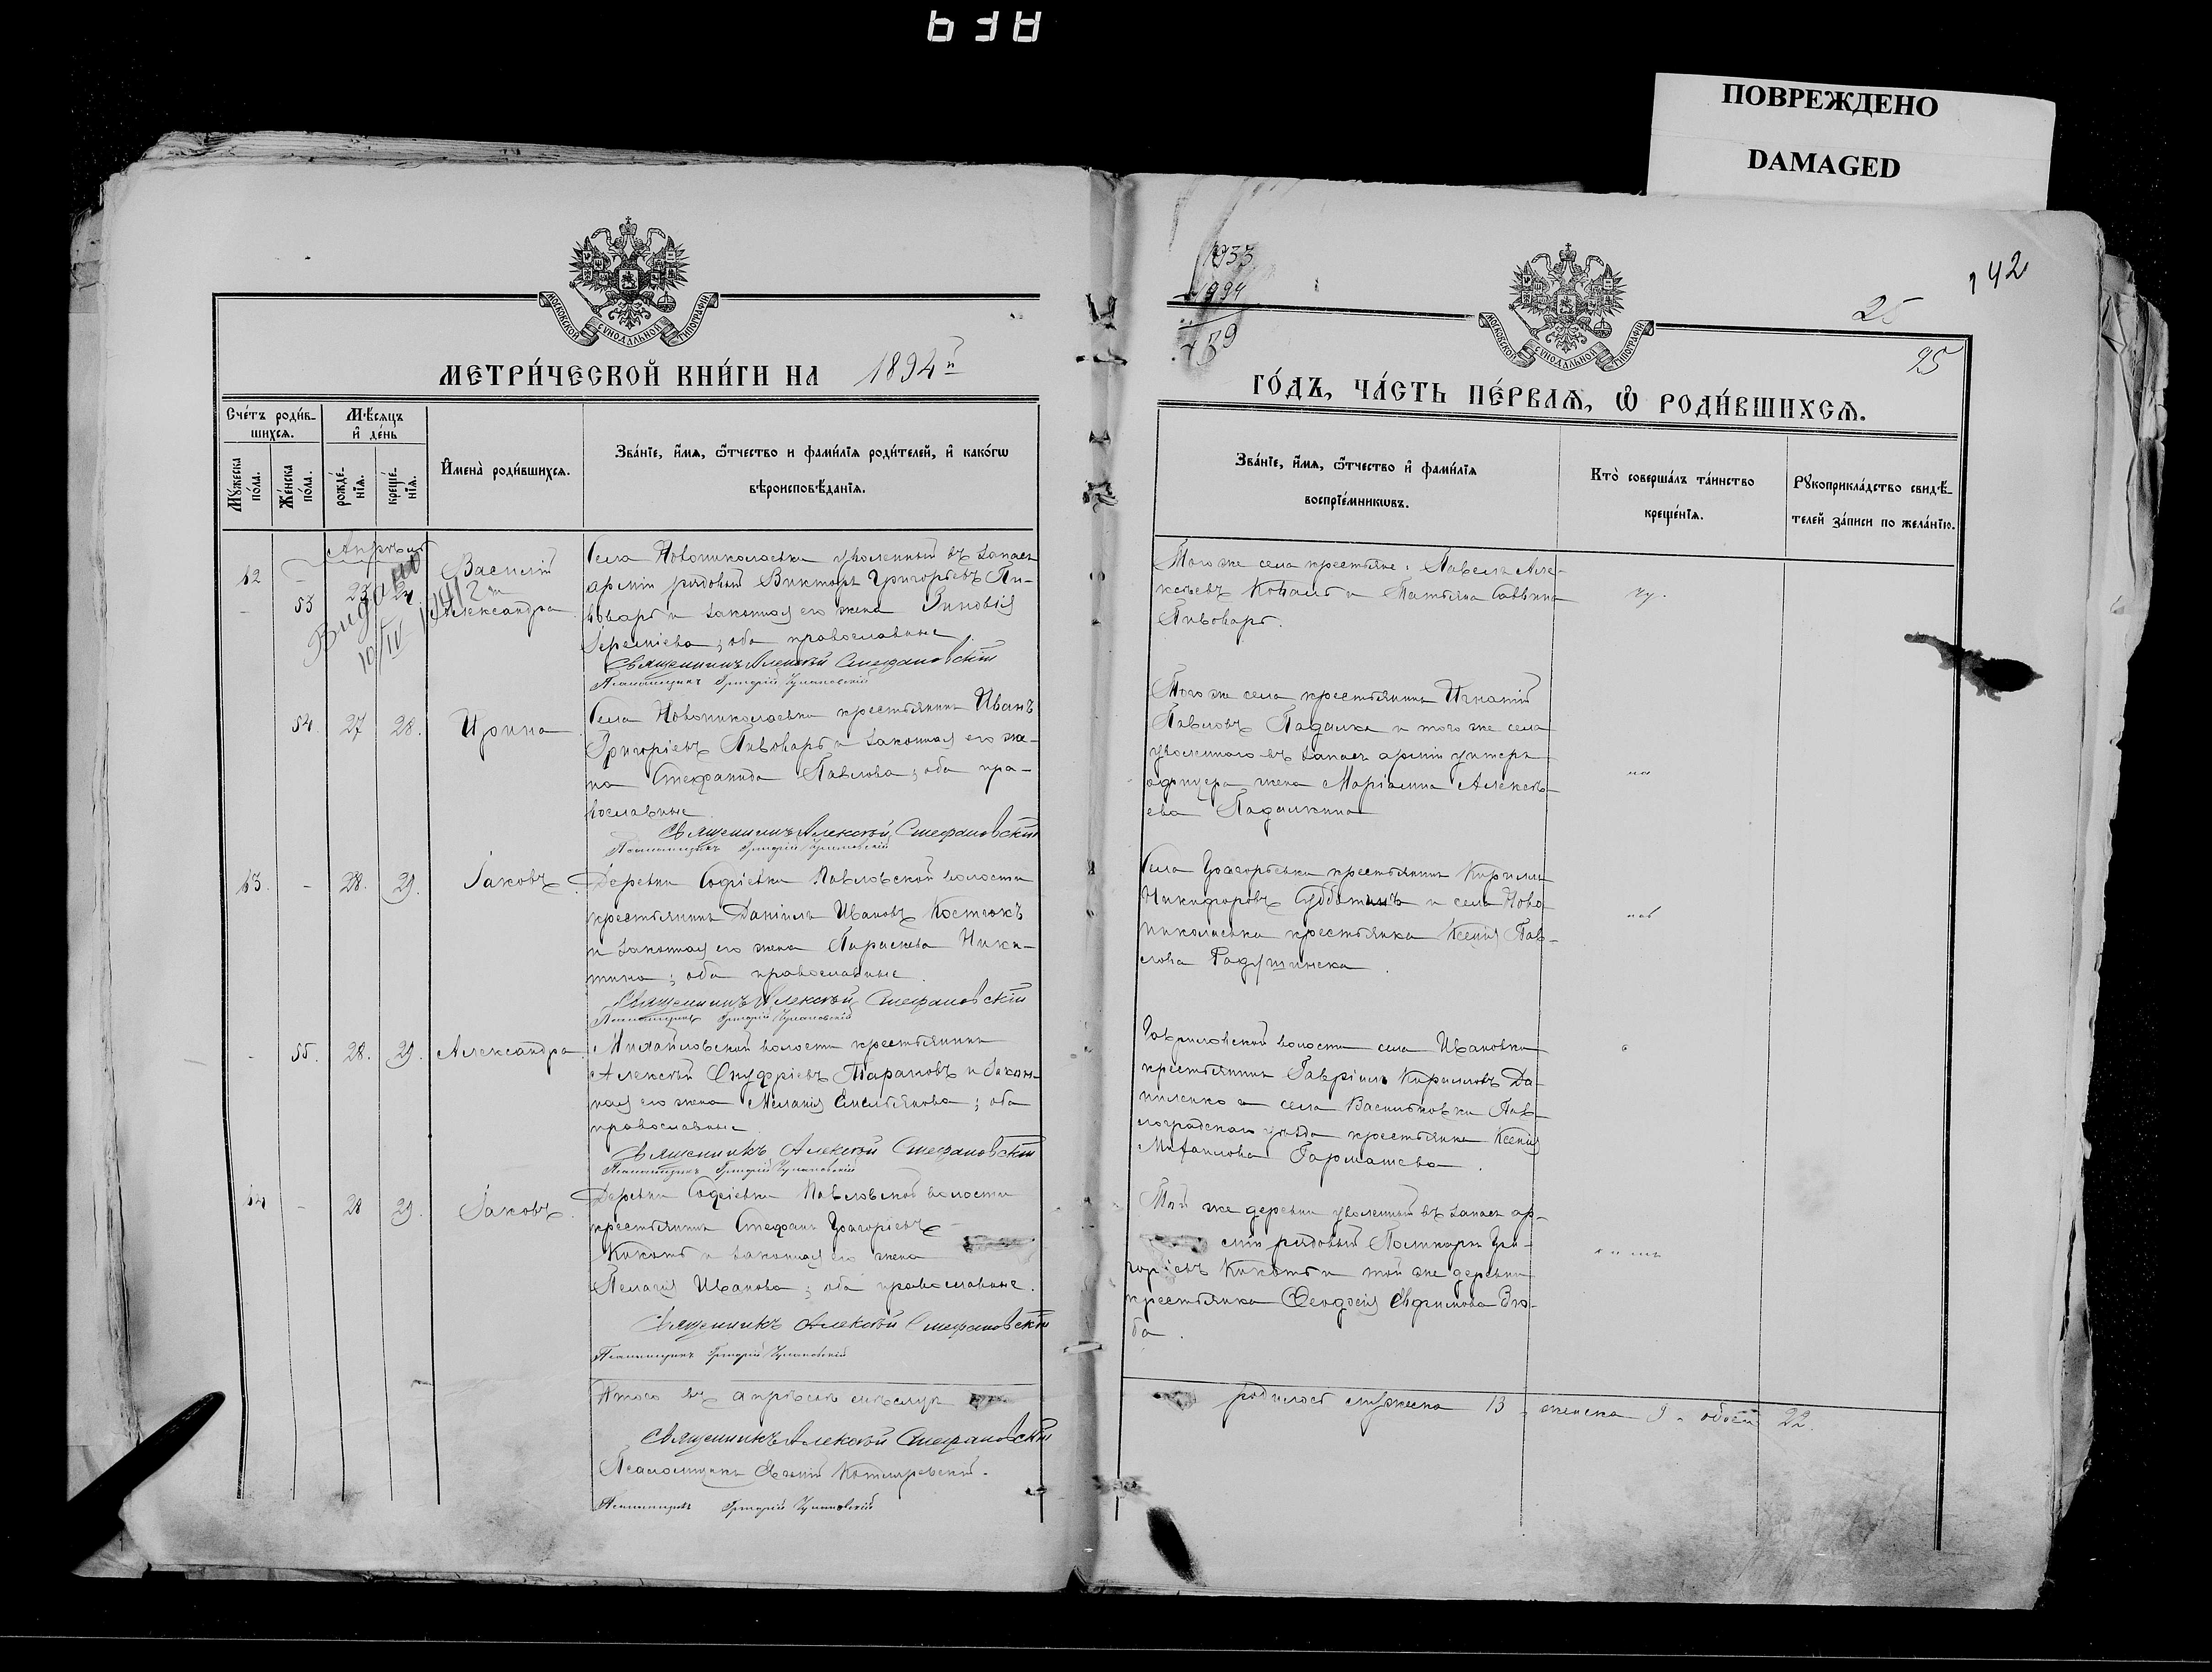 ПОВРЕЖДЕНО
DAMAGED
142
25
25
МОСКОВСКОЙ СѴНОДАЛЬНОЙ ТИПОГРАФІИ
МЕТРИ́ЧЕСКОЙ КНИ́ГИ НА 1894й
Сче́тъ роди́в-
шихсѧ.
Мѣ́сяцъ
и҆ де́нь
Мꙋ́жеска
по́ла.
Же́нска
по́ла.
рожде́-
нїѧ.
креще́-
нїѧ.
И҆мена̀ роди́вшихсѧ.
Зва́нїе, и҆́мѧ, ѻ҆́тчество и фами́лїѧ роди́телей, и҆ како́гѡ
вѣроисповѣ́данїѧ.
Апрѣль
62 - 23 24 Василій
- 53 Александра
Видано
10/IV 1912
Села Новониколаевки уволенный въ запасъ
арміи рядовый Викторъ Григорьевъ Пи-
воваръ и законная его жена Зиновія
Іереміева; оба православные.
Священникъ Алексѣй Стефановскій
Псаломщикъ Григорій
54 27 28. Ирина
Села Новониколаевки крестьянинъ Иванъ
Григоріевъ Пивоваръ и законная его же-
на Стефанида Павлова; оба пра-
вославные
Священникъ Алексѣй Стефановскій
Псаломщикъ Григорій
63. - 28. 29. Іаковъ
Деревни Софіевки Павловской волости
крестьянинъ Даніилъ Ивановъ Костюкъ
и законная его жена Параскева Ники-
тина; оба православные.
Священникъ Алексѣй Стефановскій
Псаломщикъ Григорій
- 55. 28. 29. Александра
Михайловской волости крестьянинъ
Алексѣй Онуфріевъ Тарановъ и закон-
ная его жена Меланія Емельянова; оба
православные
Священникъ Алексѣй Стефановскій
Псаломщикъ Григорій
64 - 28 29. Іаковъ.
Деревни Софіевки Павловской волости
крестьянинъ Стефанъ Григоріевъ
Кикоть и законная его жена
Пелагія Иванова; оба православные.
Священникъ Алексѣй Стефановскій
Псаломщикъ Григорій
Итого въ апрѣлѣ мѣсяцѣ
Священникъ Алексѣй Стефановскій
Псаломщикъ Котляревскій.
Псаломщикъ Григорій
МОСКОВСКОЙ СѴНОДАЛЬНОЙ ТИПОГРАФІИ
ГО́ДЪ, ЧА́СТЬ ПЕ́РВАѦ, Ѡ҆ РОДИ́ВШИХСѦ.
Зва́нїе, и҆́мѧ, ѻ҆́тчество и҆ фами́лїѧ
воспрїе́мникѡвъ.
Кто̀ соверша́лъ та́инство
креще́нїѧ.
Рꙋкоприкла́дство свидѣ́-
телей за́писи по жела́нїю.
Того же села крестьяне: Павелъ Але-
ксѣевъ Коваль и Татьяна Саввина
Пивоваръ.
Того же села крестьянинъ Игнатій
Павловъ Падалка и того же села
уволеннаго въ запасъ арміи унтеръ-
офицера жена Маріамна Алексѣ-
ева Падалкина
Села Григорьевки крестьянинъ Кириллъ
Никифоровъ Субботинъ и села Ново-
николаевки крестьянка Ксенія Пав-
лова Радушинска.
Гавриловской волости села Ивановки
крестьянинъ Гавріилъ Кирилловъ Да-
ниленко и села Васильковки Пав-
лоградскаго уѣзда крестьянка Ксенія
Михаилова Гармашева.
Той же деревни уволенный въ запасъ ар-
міи рядовый Поликарпъ Гри-
горіевъ Кикоть и той же деревни
крестьянка Ѳеодосія Евфимова Зю-
ба.
родилось мужеска 13 женска 9 обоего 22.